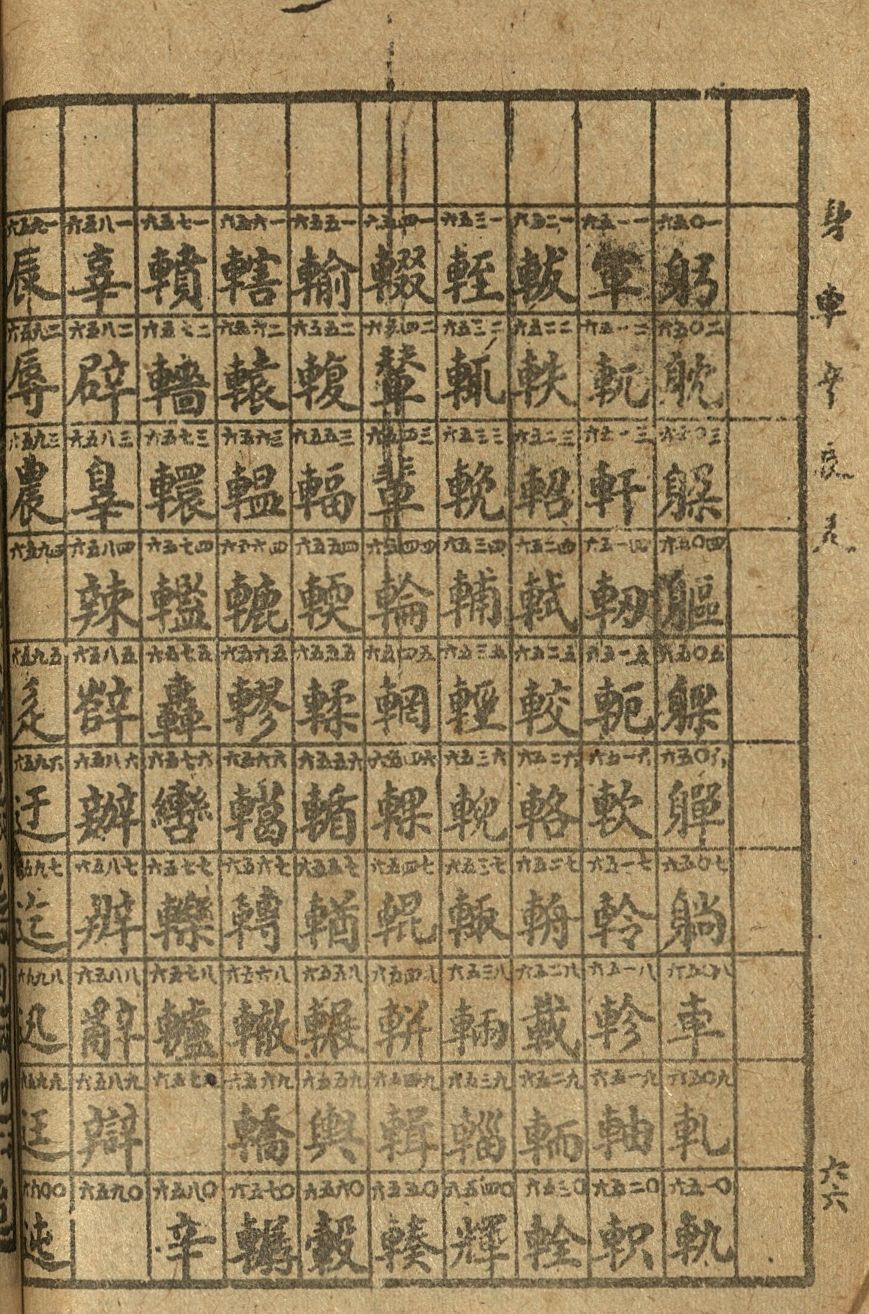 身車辛辰辵
六六
六五〇一 躬 六五〇二 躭 六五〇三 躲 六五〇四 軀 六五〇五 躶 六五〇六 軃 六五〇七 躺 六五〇八 車 六五〇九 軋 六五一〇 軌
六五一一 軍 六五一二 軏 六五一三 軒 六五一四 軔 六五一五 軛 六五一六 軟 六五一七 軨 六五一八 軫 六五一九 軸 六五二〇 軹
六五二一 軷 六五二二 軼 六五二三 軺 六五二四 軾 六五二五 較 六五二六 輅 六五二七 輈 六五二八 載 六五二九 輀 六五三〇 輇
六五三一 輊 六五三二 輒 六五三三 輓 六五三四 輔 六五三五 輕 六五三六 輗 六五三七 六五三八 輛 六五三九 輜 六五四〇 輝
六五四一 輟 六五四二 輦 六五四三 輩 六五四四 輪 六五四五 輞 六五四六 輠 六五四七 輥 六五四八 輧 六五四九 輯 六五五〇 輳
六五五一 輸 六五五二 輹 六五五三 輻 六五五四 輭 六五五五 輮 六五五六 輴 六五五七 輶 六五五八 輾 六五五九 輿 六五六〇 轂
六五六一 轄 六五六二 轅 六五六三 轀 六五六四 轆 六五六五 轇 六五六六 轕 六五六七 轉 六五六八 轍 六五六九 轎 六五七〇
六五七一 轒 六五七二 轖 六五七三 轘 六五七四 轞 六五七五 轟 六五七六 轡 六五七七 轢 六五七八 轤 六五七九 六五八〇 辛
六五八一 辜 六五八二 辟 六五八三 辠 六五八四 辣 六五八五 辥 六五八六 辦 六五八七 辨 六五八八 辭 六五八九 辯 六五九〇
六五九一 辰 六五九二 辱 六五九三 農 六五九四 六五九五 辵 六五九六 迂 六五九七 迄 六五九八 迅 六五九九 迋 六六〇〇 迍